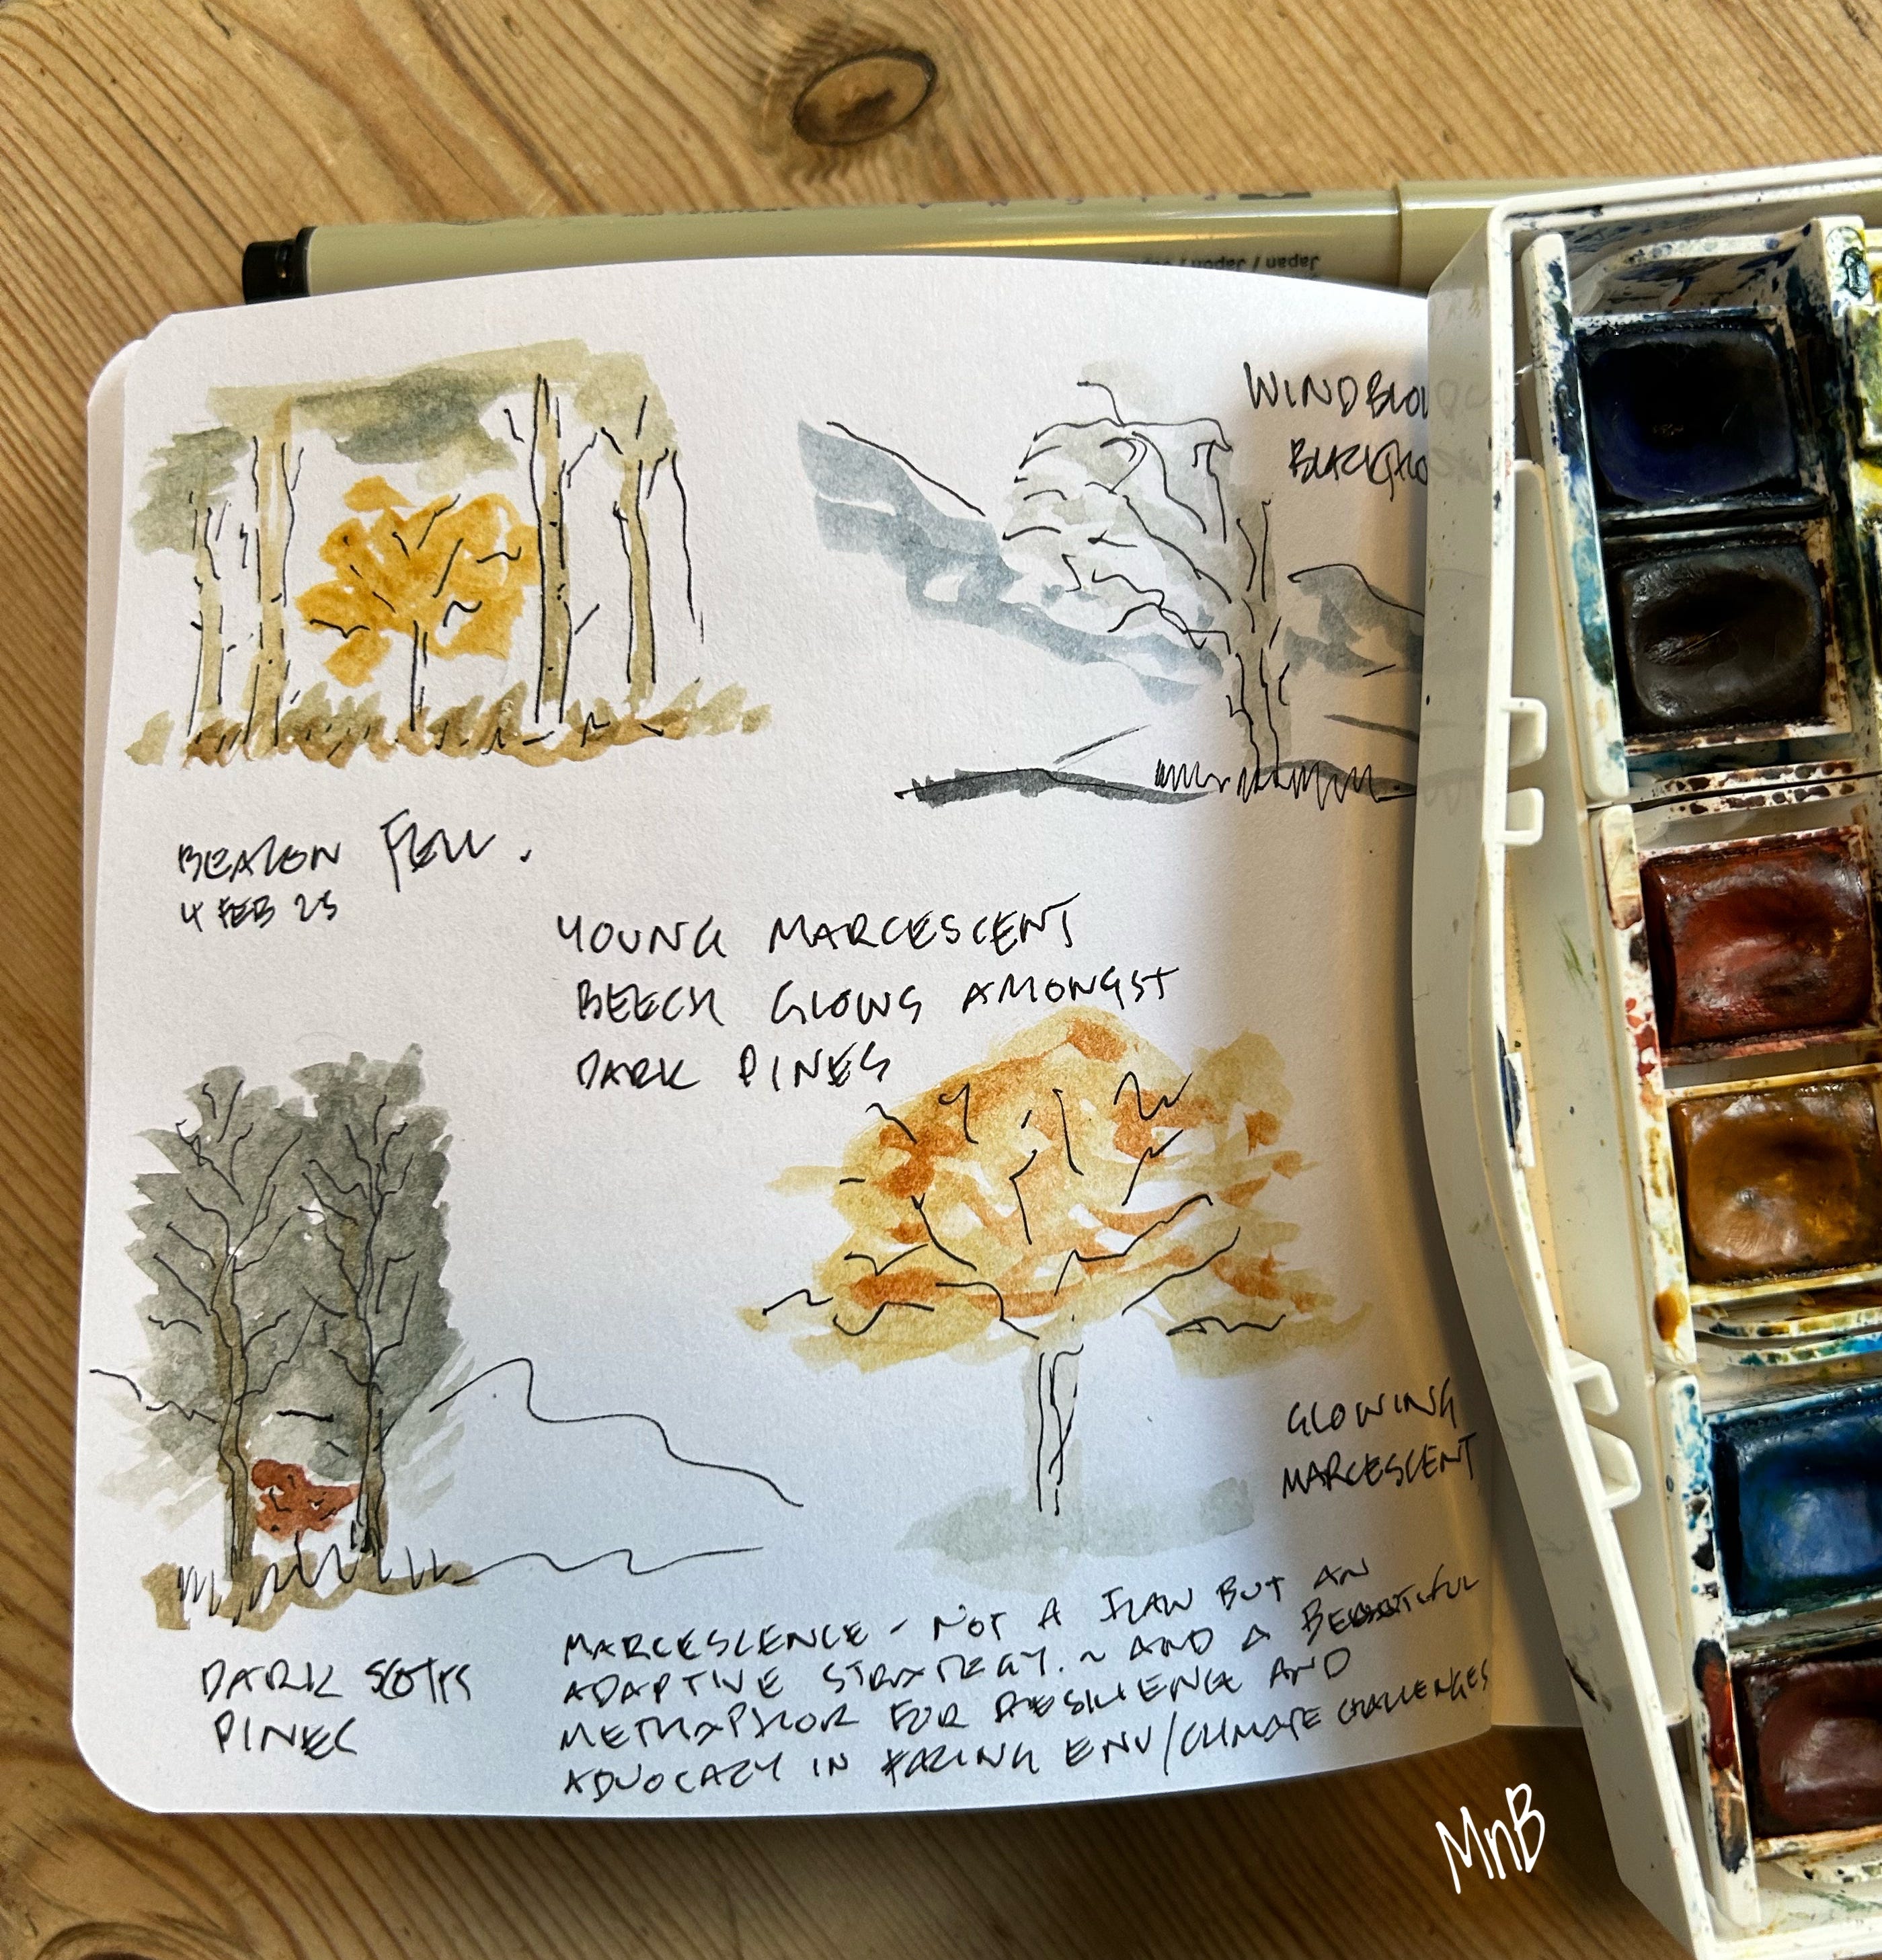 Japan / Japon /
WINDBLOW
BEACON FELL.
4 FEB 25
YOUNG MARCESCENT
BEECH GLOWS AMONGST
DARK PINES
GLOWING
MARCESCENT
DARK SCOTS
PINES
MARCESCENCE - NOT A FLAW BUT AN
ADAPTIVE STRATEGY. ~ AND A BEAUTIFUL
METHAPHOR FOR RESILIENCE AND
ADVOCACY IN FACING ENV/CLIMATE CHALLENGES
MnB